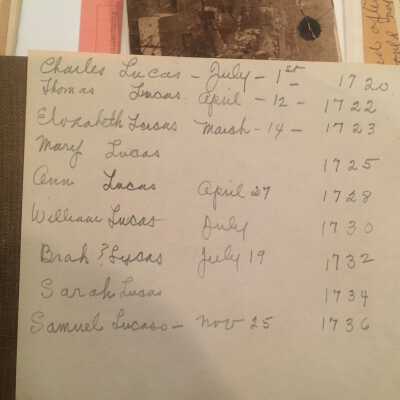 Charles Lucas - July - 1st - 1720
Thomas Lucas. April - 12 - 1722
Elozabeth Lucas March - 14 - 1723
Mary Lucas 1725
Ann Lucas April 27 1728
William Lucas July 1730
Brah? Lucas July 19 1732
Sarah Lucas 1734
Samuel Lucas - Nov 25 1736